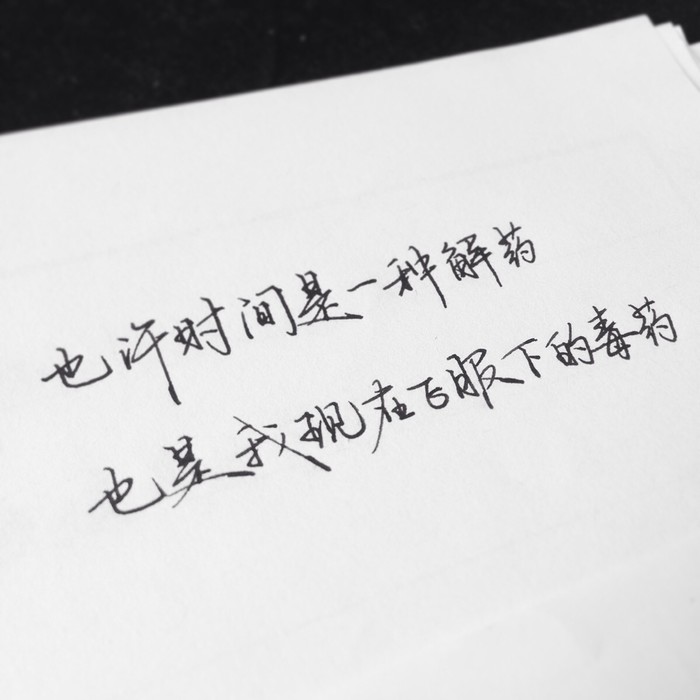 也许时间是一种解药
也是我现在正服下的毒药